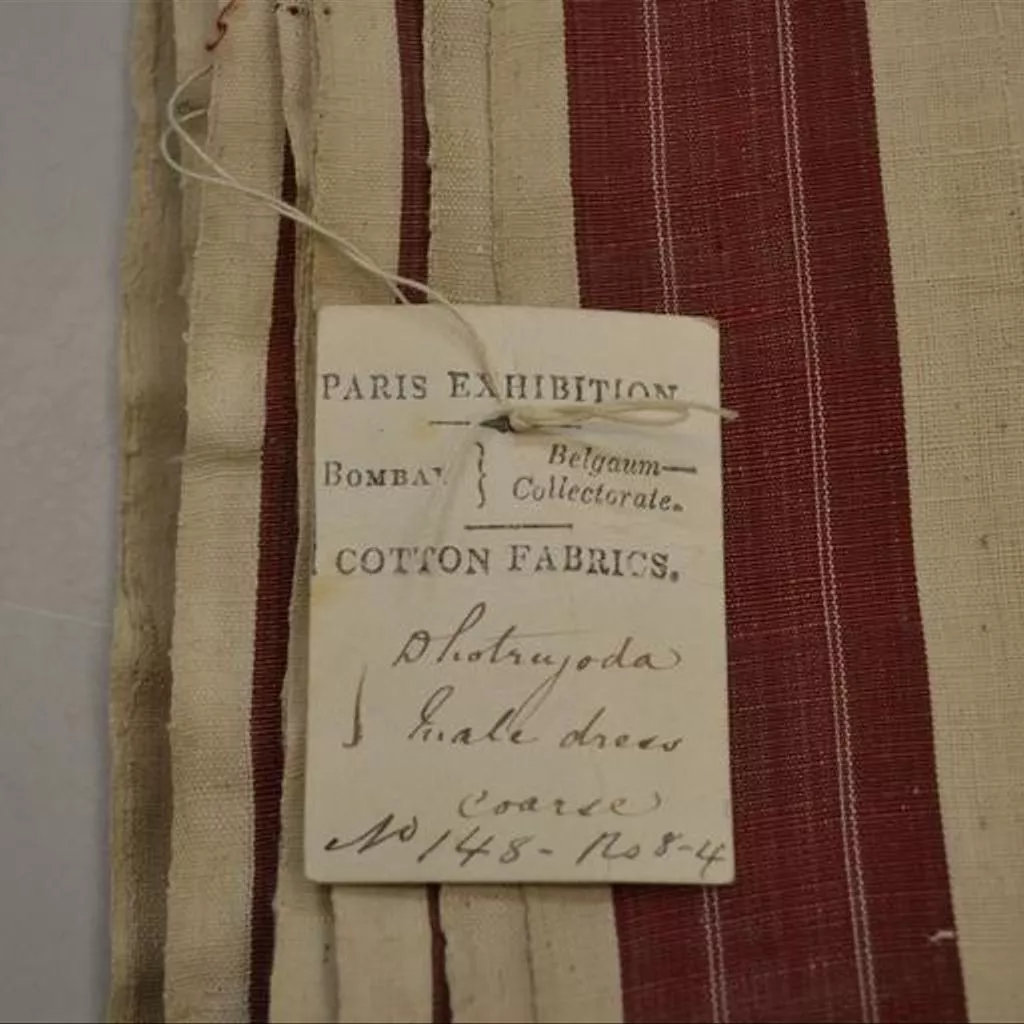 PARIS EXHIBITION
BOMBAY } Belgaum—
Collectorate.
COTTON FABRICS.
Dhotrujoda
Male dress
coarse
No 148 - Rs 8-4